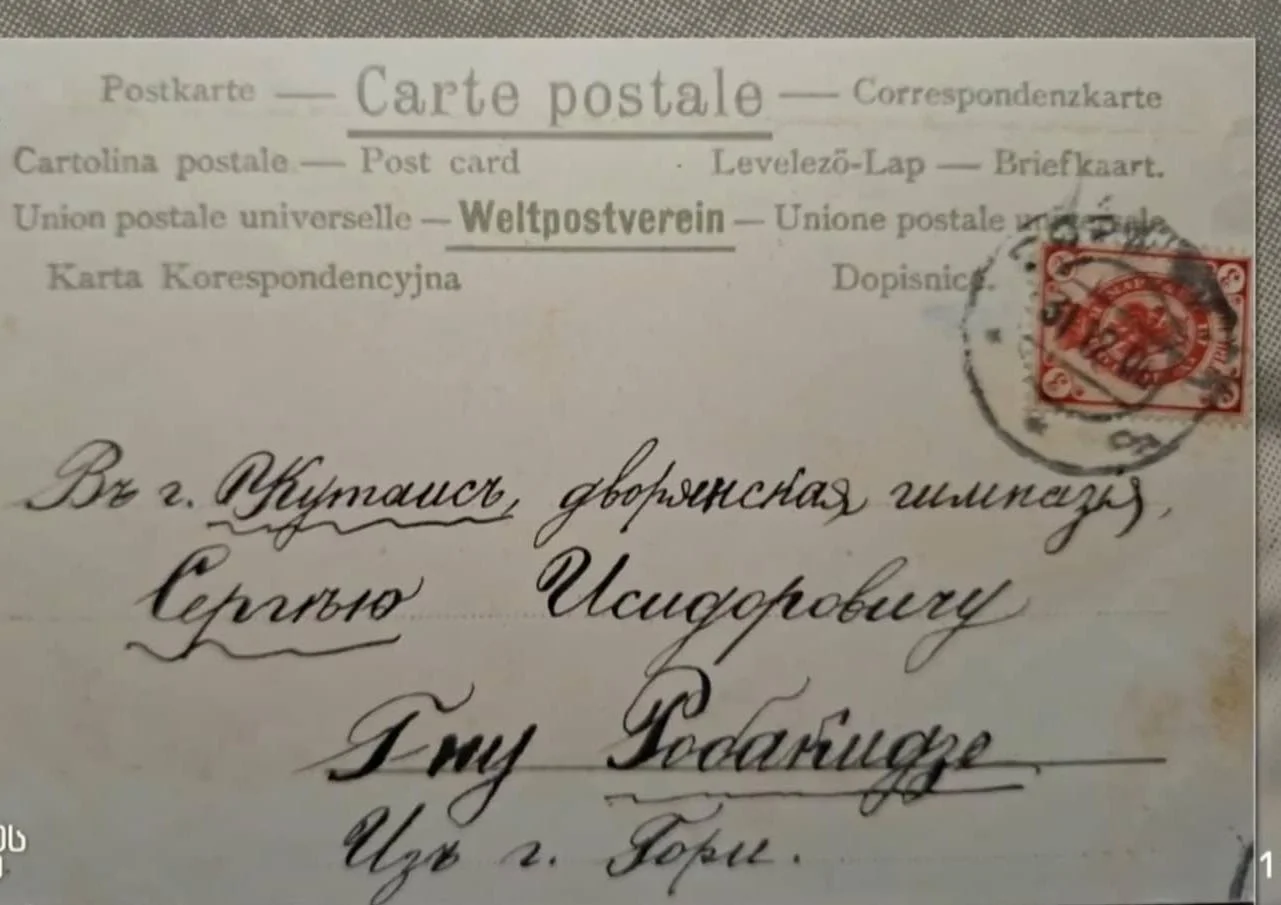 Postkarte — Carte postale — Correspondenzkarte
Cartolina postale — Post card Levelező-Lap — Briefkaart.
Union postale universelle — Weltpostverein — Unione postale universale
Karta Korespondencyjna Dopisnice.
31 12 06
3 3 3 3
Въ г. Кутаисъ, дворянская гимназія,
Сергѣю Исидоровичу
Г-ну Робакидзе
Изъ г. Гори.
ის
1